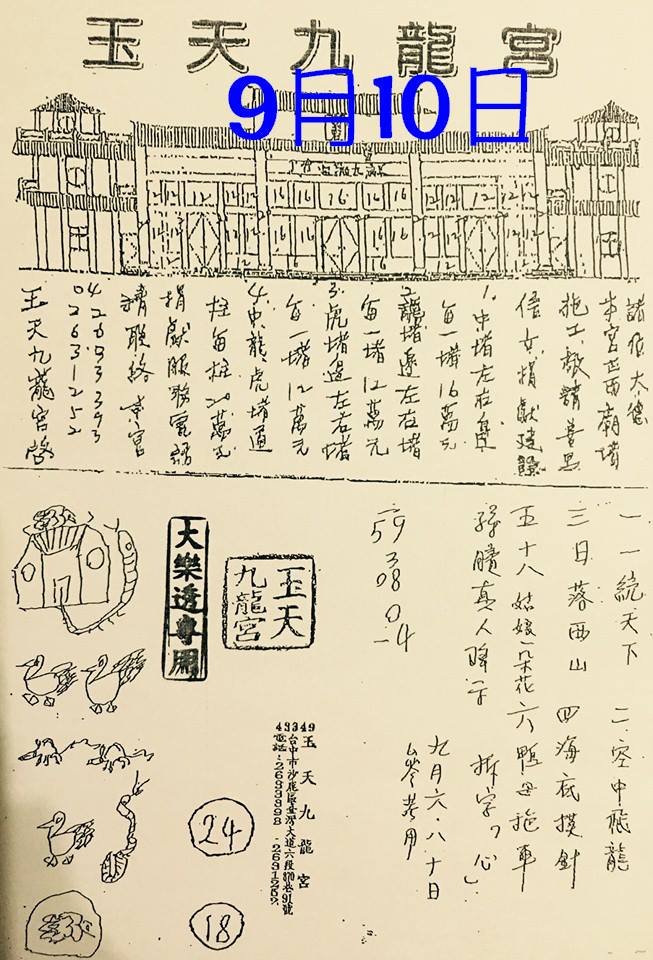 玉天九龍宮
9月10日
諸位大德
本宮正面廟堵
施工敬請善男
信女捐獻
1.中堵左右
每一堵16萬元
2.龍堵邊左右堵
每一堵12萬元
3.虎堵邊左右堵
每一堵12萬元
4.中龍、虎堵通
柱每柱20萬元
捐獻服務電話
請聯絡本宮
04
玉天九龍宮啓
一一統天下 二空中飛龍
三日落西山 四海底摸針
五十八姑娘一朵花六鴨母拖車
孫臏真人降示 拆字「心」
九月六.八十日
參考用
59
3
08
0
4
玉天
九龍宮
大樂透專用
玉天九龍宮
24
18